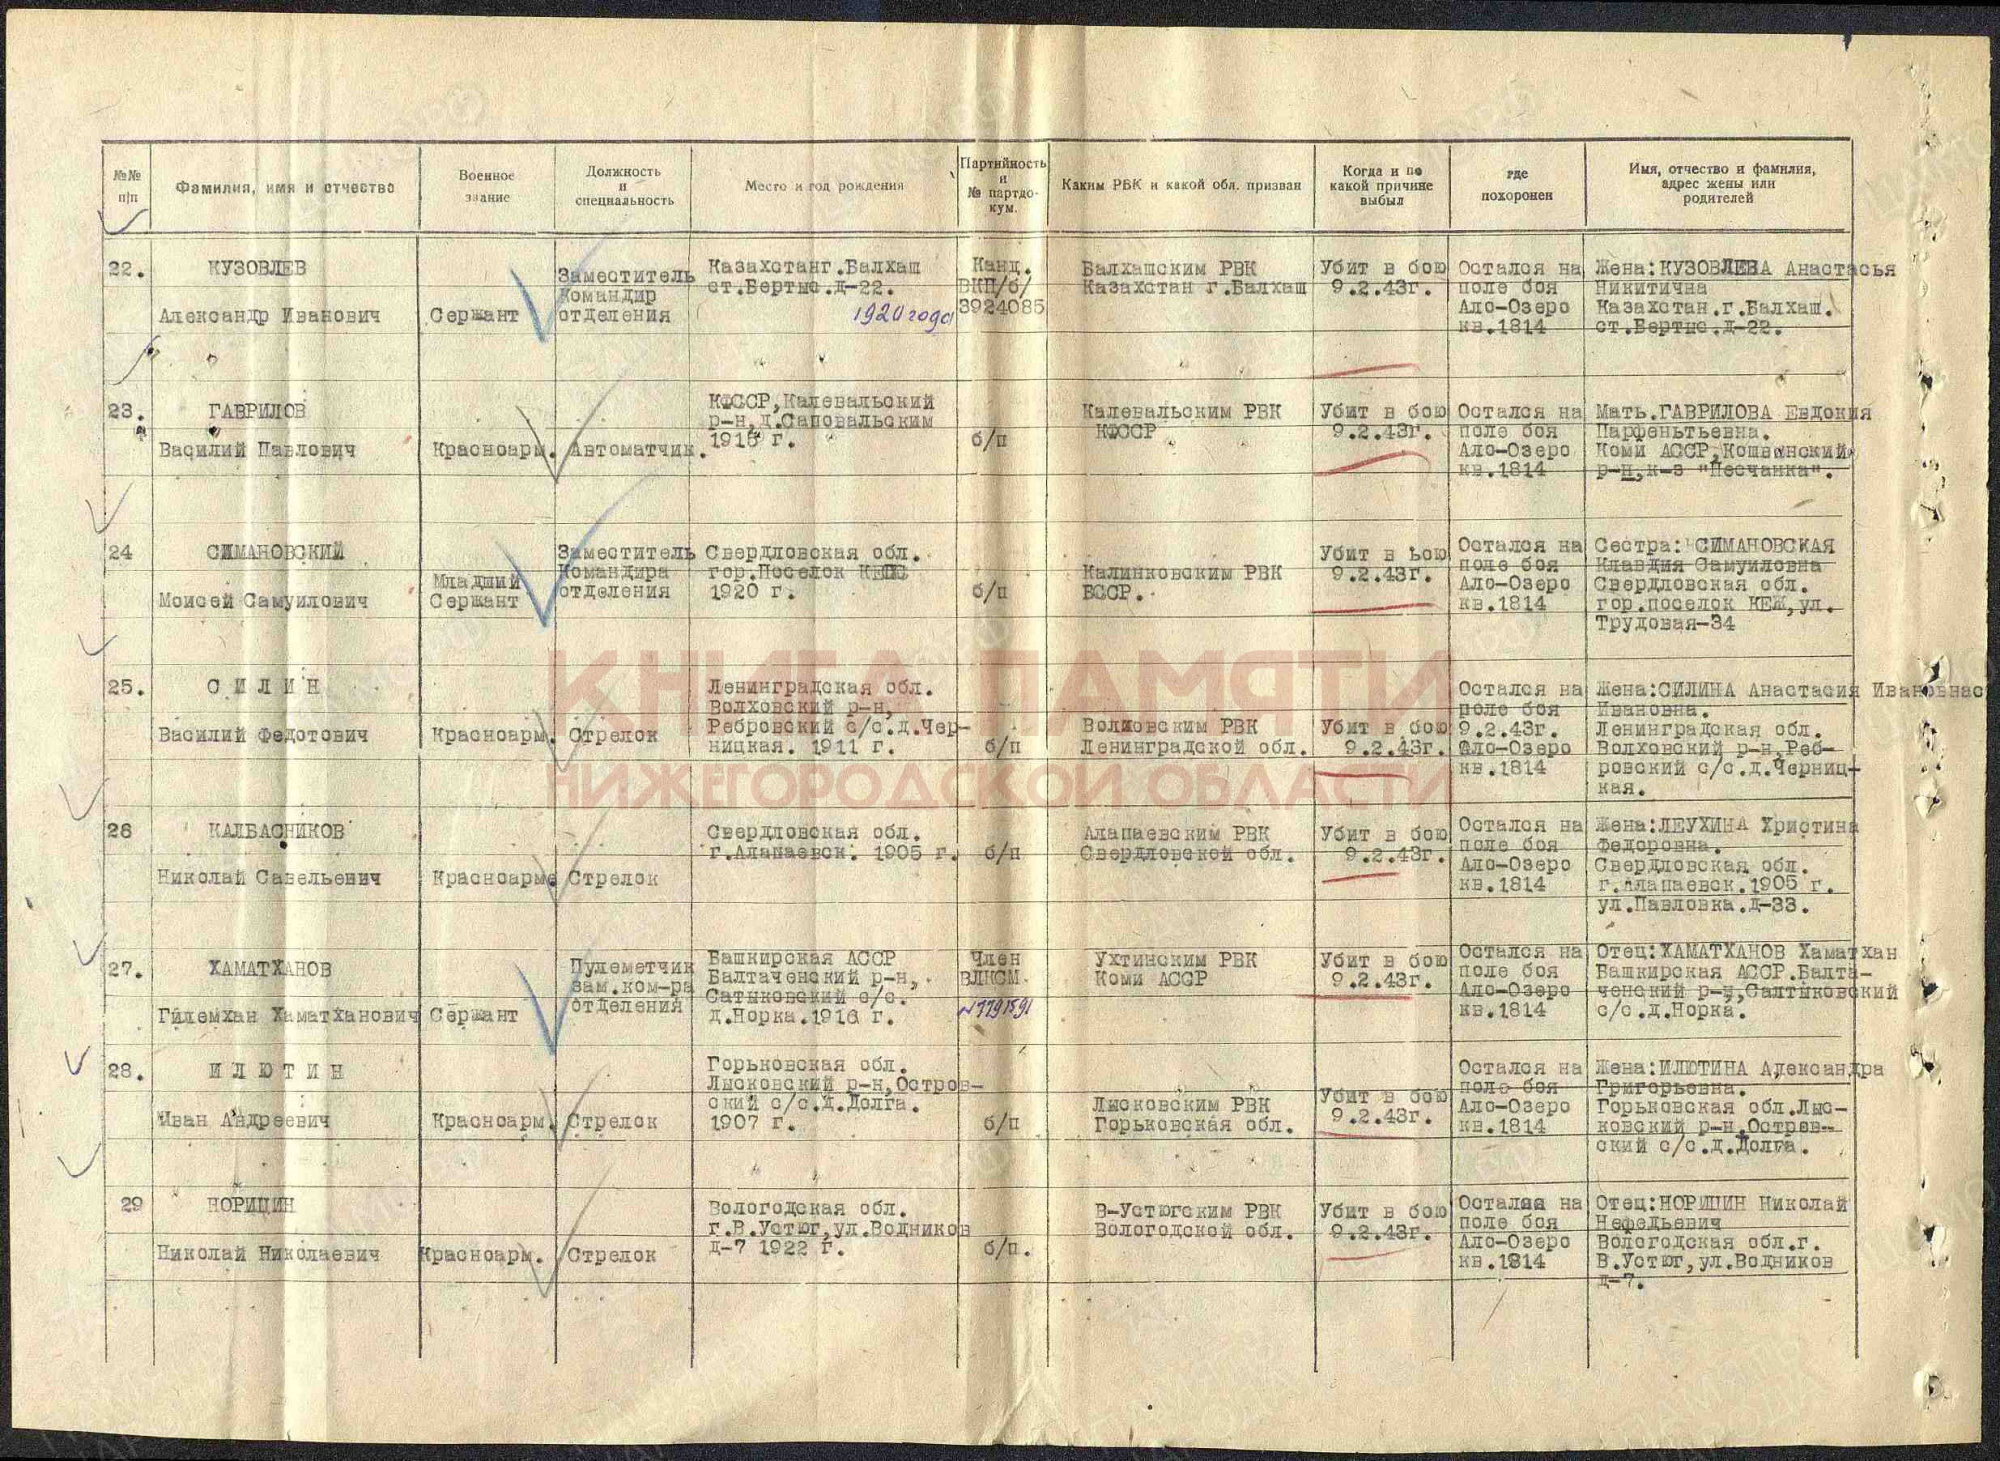 №№ п/п
Фамилия, имя и отчество
Военное звание
Должность и специальность
Место и год рождения
Партийность и № партдокум.
Каким РВК и какой обл. призван
Когда и по какой причине выбыл
где похоронен
Имя, отчество и фамилия, адрес жены или родителей
22.
КУЗОВЛЕВ
Александр Иванович
Сержант
Заместитель
Командир
отделения
Казахстанг.Балхаш
ст.Бертыс.д-22.
1920 года
Канд.
ВКП/б/
3924085
Балхашским РВК
Казахстан г.Балхаш
Убит в бою
9.2.43г.
Остался на
поле боя
Ало-Озеро
кв.1814
Жена:КУЗОВЛЕВА Анастасья
Никитична
Казахстан.г.Балхаш.
ст.Бертыс.д-22.
23.
ГАВРИЛОВ
Василий Павлович
Красноарм.
Автоматчик.
КФССР,Калевальский
р-н,д.Сановальским
1915 г.
б/п
Калевальским РВК
КФССР
Убит в бою
9.2.43г.
Остался на
поле боя
Ало-Озеро
кв.1814
Мать.ГАВРИЛОВА Евдокия
Парфеньтьевна.
Коми АССР,Кошвинский
р-н,к-з "Песчанка".
24
СИМАНОВСКИЙ
Моисей Самуилович
Младший
Сержант
Заместитель
Командира
отделения
Свердловская обл.
гор.Поселок
1920 г.
б/п
Калинковским РВК
БССР.
Убит в ьою
9.2.43г.
Остался на
поле боя
Ало-Озеро
кв.1814
Сестра: СИМАНОВСКАЯ
Клавдия Самуиловна
Свердловская обл.
гор.поселок КЕЖ,ул.
Трудовая-34
25.
С И Л И Н
Василий Федотович
Красноарм.
Стрелок
Ленинградская обл.
Волховский р-н,
Ребровский с/с.д.Чер-
ницкая. 1911 г.
б/п
Волховским РВК
Ленинградской обл.
Убит в бою
9.2.43г.
Остался на
поле боя
9.2.43г.
Ало-Озеро
кв.1814
Жена:СИЛИНА Анастасия Ивановнас
Ивановна.
Ленинградская обл.
Волховский р-н,Реб-
ровский с/с.д.Черниц-
кая.
КНИГА ПАМЯТИ
НИЖЕГОРОДСКОЙ ОБЛАСТИ
26
КАЛБАСНИКОВ
Николай Савельевич
Красноарме
Стрелок
Свердловская обл.
г.Алапаевск. 1905 г.
б/п
Алапаевским РВК
Свердловской обл.
Убит в бою
9.2.43г.
Остался на
поле боя
Ало-Озеро
кв.1814
Жена:ЛЕУХИНА Христина
Федоровна.
Свердловская обл.
г.Алапаевск.1905 г.
ул.Павловка.д-33.
27.
ХАМАТХАНОВ
Гилемхан Хаматханович
Сержант
Пулеметчик
зам.ком-ра
отделения
Башкирская АССР
Балтаченский р-н,
Сатыковский с/с.
д.Норка.1916 г.
Член
ВЛКСМ.
Ухтинским РВК
Коми АССР
Убит в бою
9.2.43г.
Остался на
поле боя
Ало-Озеро
кв.1814
Отец:ХАМАТХАНОВ Хаматхан
Башкирская АССР.Балта-
ченский р-н,Салтыковский
с/с.д.Норка.
28.
И Л Ю Т И Н
Иван Андреевич
Красноарм.
Стрелок
Горьковская обл.
Лысковский р-н,Остров-
ский с/с.д.Долга.
1907 г.
б/п
Лысковским РВК
Горьковская обл.
Убит в бою
9.2.43г.
Остался на
поле боя
Ало-Озеро
кв.1814
Жена:ИЛЮТИНА Александра
Григорьевна.
Горьковская обл.Лыс-
ковский р-н,Остров-
ский с/с.д.Долга.
29
НОРИЦИН
Николай Николаевич
Красноарм.
Стрелок
Вологодская обл.
г.В.Устюг,ул.Водников
д-7 1922 г.
б/п.
В-Устюгским РВК
Вологодской обл.
Убит в бою
9.2.43г.
Остался на
поле боя
Ало-Озеро
кв.1814
Отец:НОРИЦИН Николай
Нефедьевич
Вологодская обл.г.
В.Устюг,ул.Водников
д-7.